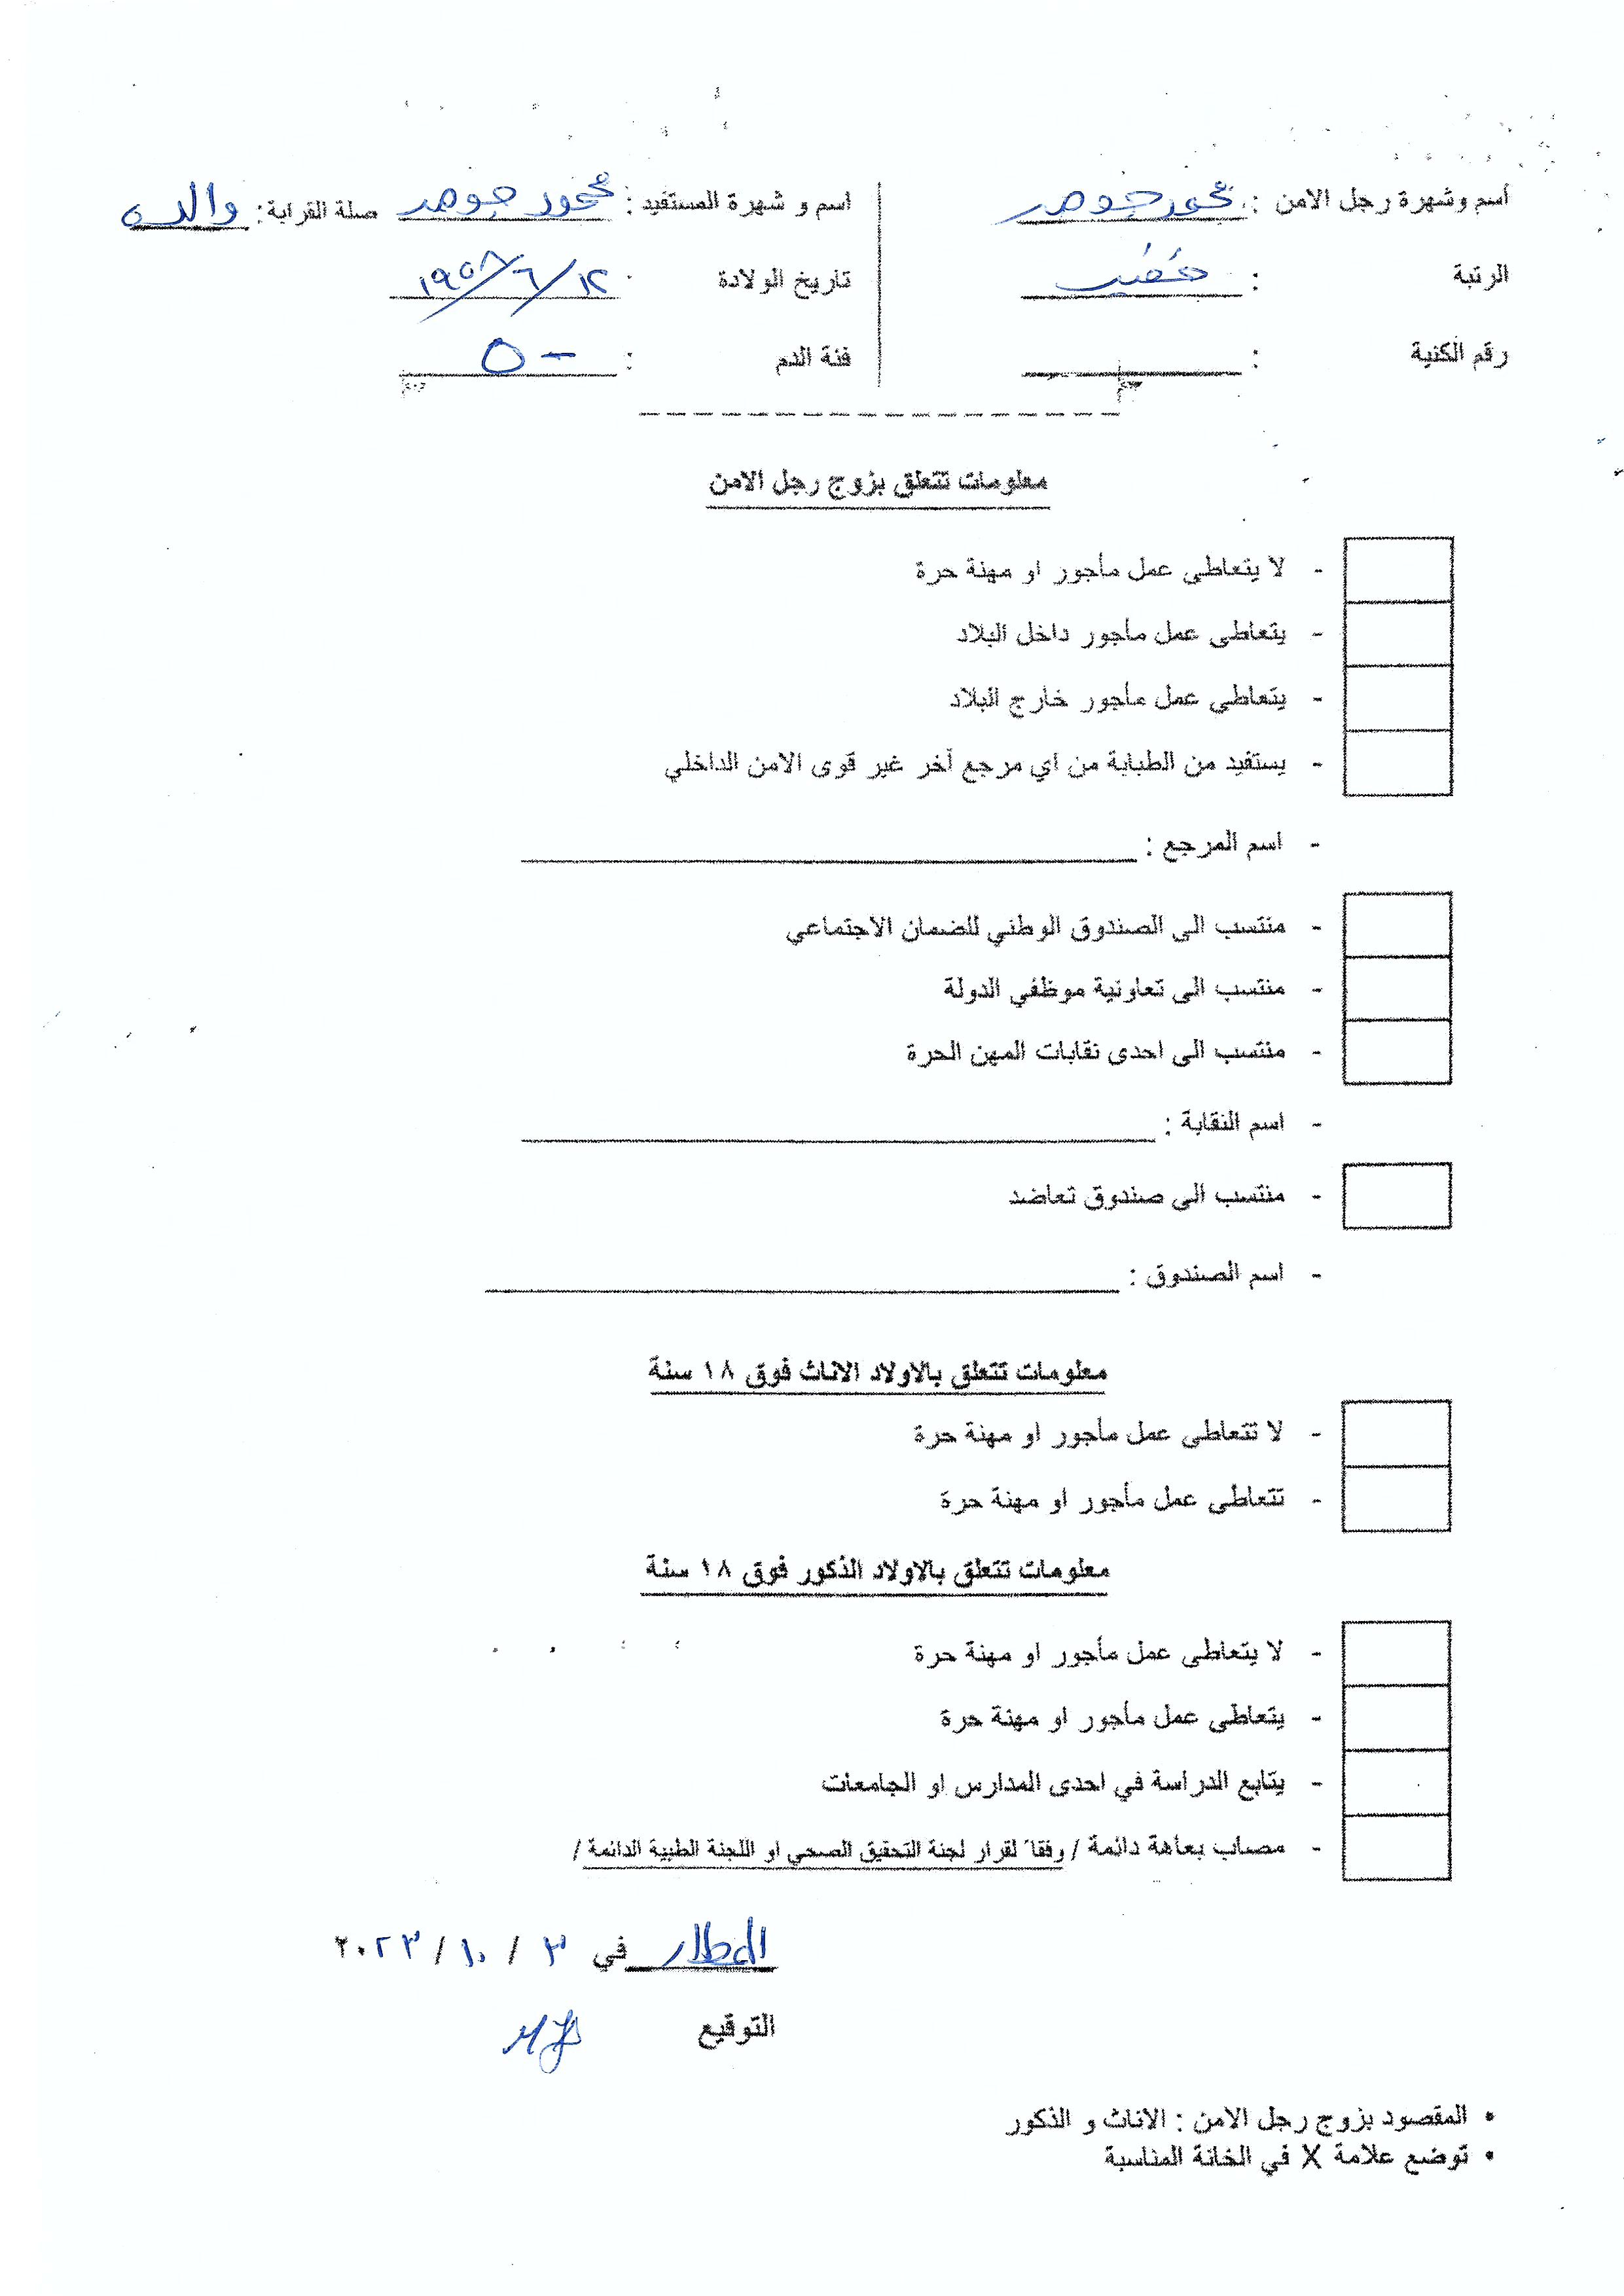 أسم وشهرة رجل الامن : محمود جوهر
الرتبة :
رقم الكنية :
اسم و شهرة المستفيد : محمود جوهر صلة القرابة: والده
تاريخ الولادة : ١٢/٦/١٩٥٨
فئة الدم : O -
معلومات تتعلق بزوج رجل الامن
- لا يتعاطى عمل مأجور او مهنة حرة
- يتعاطى عمل مأجور داخل البلاد
- يتعاطى عمل مأجور خارج البلاد
- يستفيد من الطبابة من اي مرجع آخر غير قوى الامن الداخلي
- اسم المرجع :
- منتسب الى الصندوق الوطني للضمان الاجتماعي
- منتسب الى تعاونية موظفي الدولة
- منتسب الى احدى نقابات المهن الحرة
- اسم النقابة :
- منتسب الى صندوق تعاضد
- اسم الصندوق :
معلومات تتعلق بالاولاد الاناث فوق ١٨ سنة
- لا تتعاطى عمل مأجور او مهنة حرة
- تتعاطى عمل مأجور او مهنة حرة
معلومات تتعلق بالاولاد الذكور فوق ١٨ سنة
- لا يتعاطى عمل مأجور او مهنة حرة
- يتعاطى عمل مأجور او مهنة حرة
- يتابع الدراسة في احدى المدارس او الجامعات
- مصاب بعاهة دائمة / وفقا لقرار لجنة التحقيق الصحي او اللجنة الطبية الدائمة /
المطار في ٣ / ١٠ / ٢٠٢٣
التوقيع
• المقصود بزوج رجل الامن : الاناث و الذكور
• توضع علامة X في الخانة المناسبة